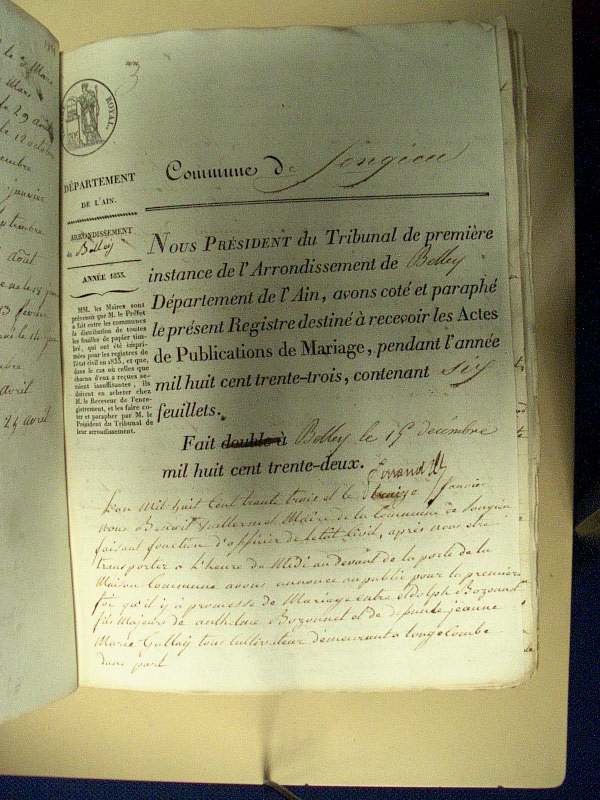 3
ROYAL.
Commune de Songieu
DÉPARTEMENT
DE L'AIN.
ARRONDISSEMENT
de Belley
ANNÉE 1833.
MM. les Maires sont
prévenus que M. le Préfet
a fait entre les communes
la distribution de toutes
les feuilles de papier tim-
bré, qui ont été impri-
mées pour les registres de
l'état civil en 1833, et que,
dans le cas où celles que
chacun d'eux a reçues se-
raient insuffisantes, ils
doivent en acheter chez
M. le Receveur de l'enre-
gistrement, et les faire co-
ter et parapher par M. le
Président du Tribunal de
leur arrondissement.
NOUS PRÉSIDENT du Tribunal de première
instance de l'Arrondissement de Belley
Département de l'Ain, avons coté et paraphé
le présent Registre destiné à recevoir les Actes
de Publications de Mariage, pendant l'année
mil huit cent trente-trois, contenant six
feuillets.
Fait double à Belley le 15 décembre
mil huit cent trente-deux.
L'an mil huit cent trente trois et le treize janvier
nous Benoit maire de la Commune de Songieu
faisant fonction d'officier de l'etat Civil, après nous etre
transporter a L'heure de Midi au devant de la porte de la
Maison Commune avons annoncé au public pour la première
fois qu'il y a promesse de Mariage entre Adolph Bozonnet
fils Majeur de anthelme Bozonnet et de defunte jeanne
Marie Gallay tous cultivateur demeurant a longecombe
dune part
le 3 Mars
Mars
le 29 août
le 12 octobre
janvier
septembre
août
13 février
avril
24 avril